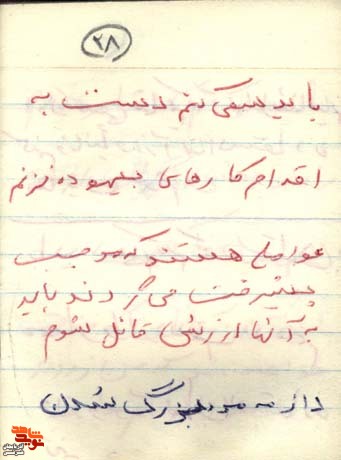 ۲۸
باید سعی کنم دست به
اقدام کارهای بیهوده نزنم
عواملی هستند که موجب
پیشرفت می گردند باید
به آنها ارزش قائل شوم
بزرگ شدن